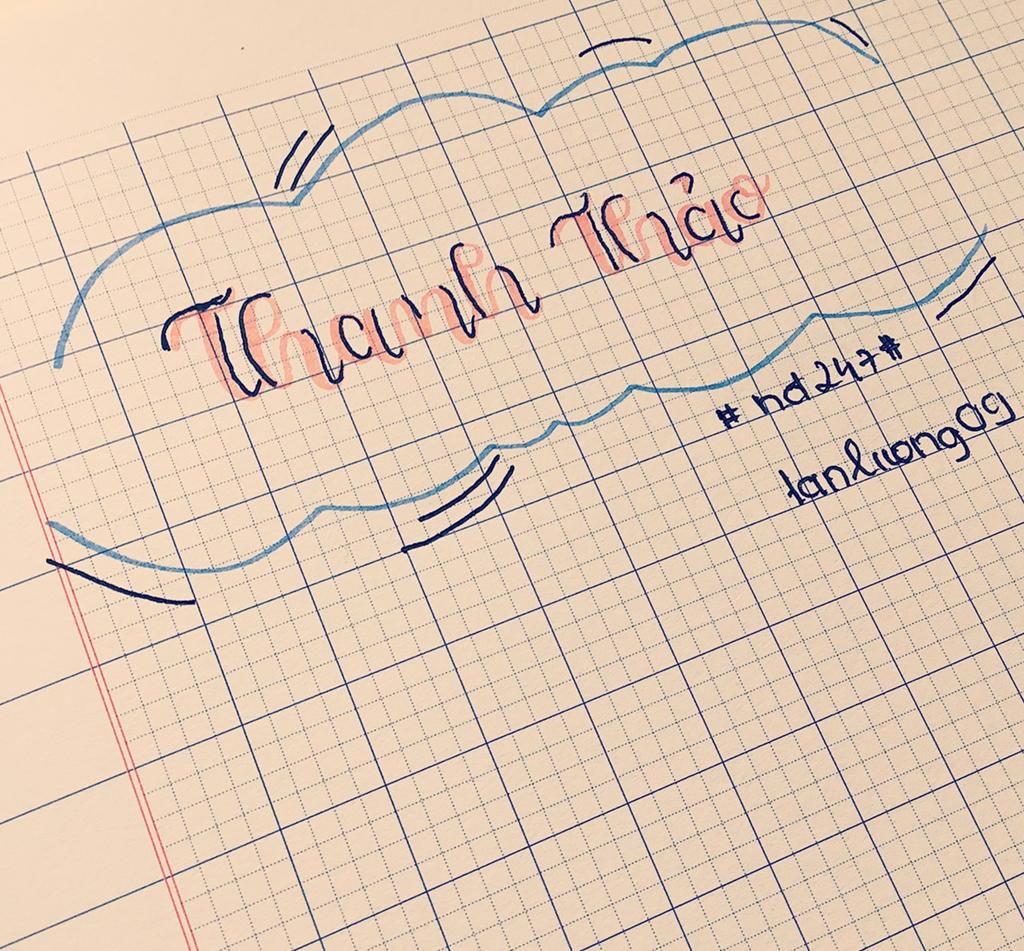 Thanh Thảo
# nd247#
tanluong09